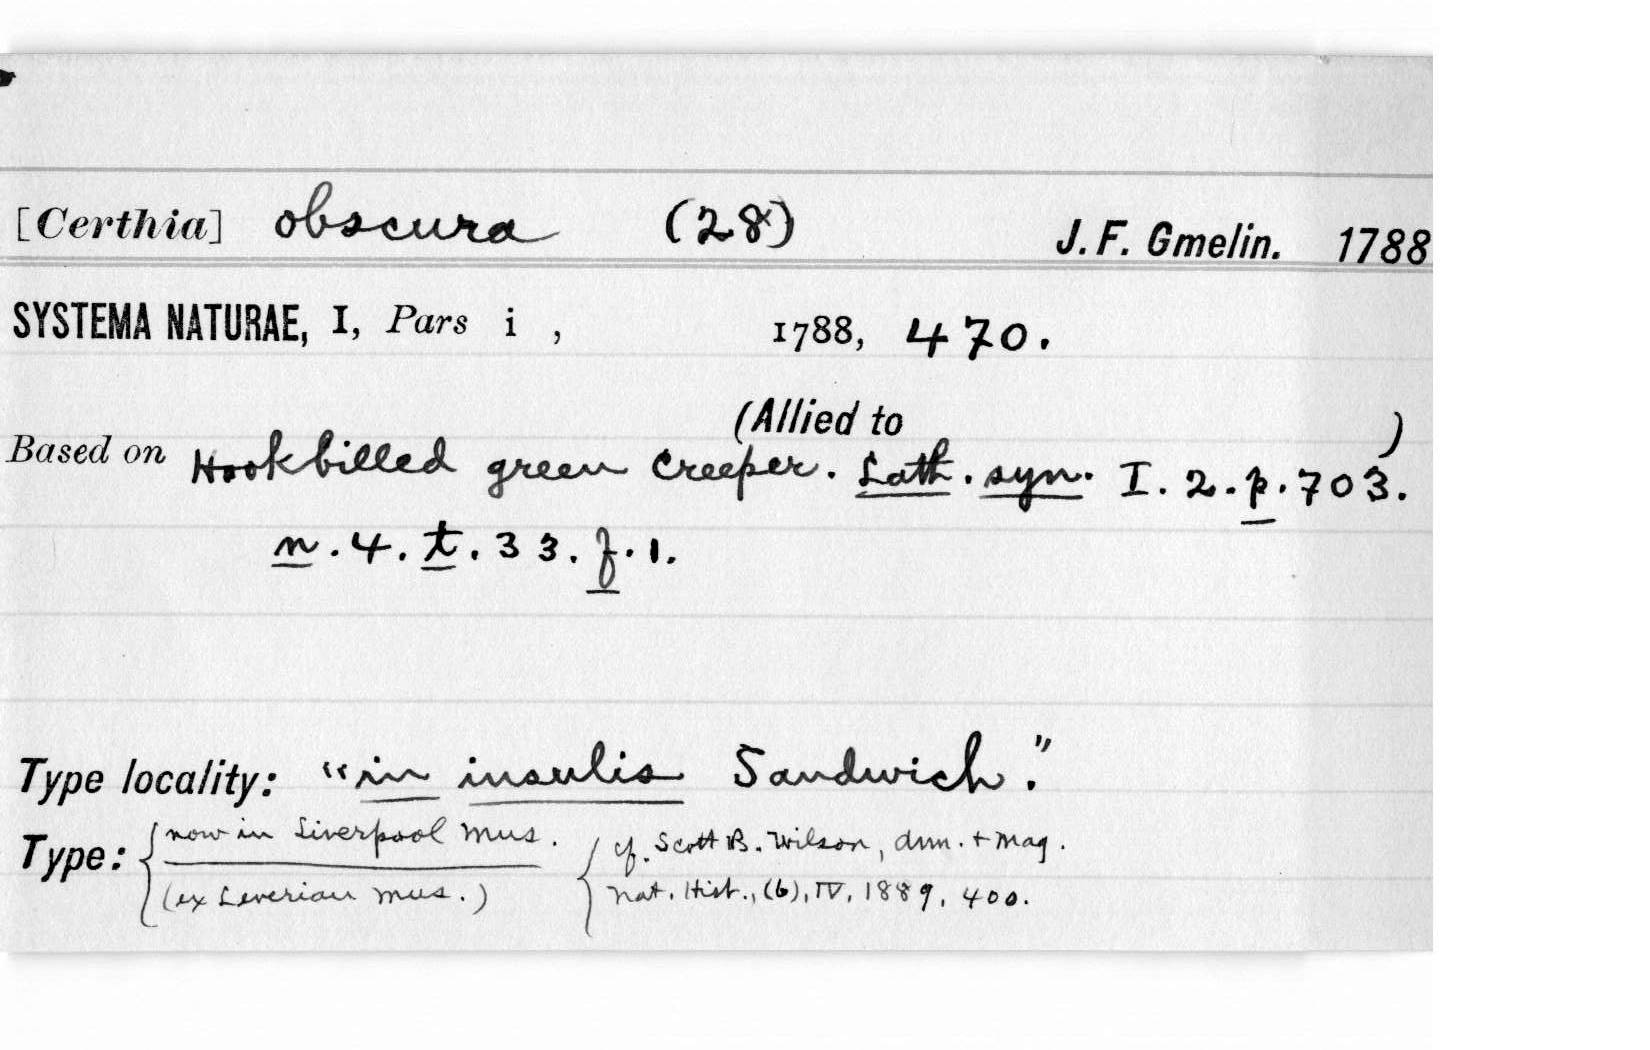 [Certhia] obscura (28) J. F. Gmelin. 1788
SYSTEMA NATURAE, I, Pars i , 1788, 470.
(Allied to )
Based on Hookbilled green Creeper. Lath. syn. I. 2. p. 703.
n. 4. t. 33. f. 1.
Type locality: "in insulis Sandwich."
Type: { now in Liverpool Mus. { cf. Scott B. Wilson, Ann. + Mag.
(ex Leverian Mus.) Nat. Hist., (6), IV, 1889, 400.